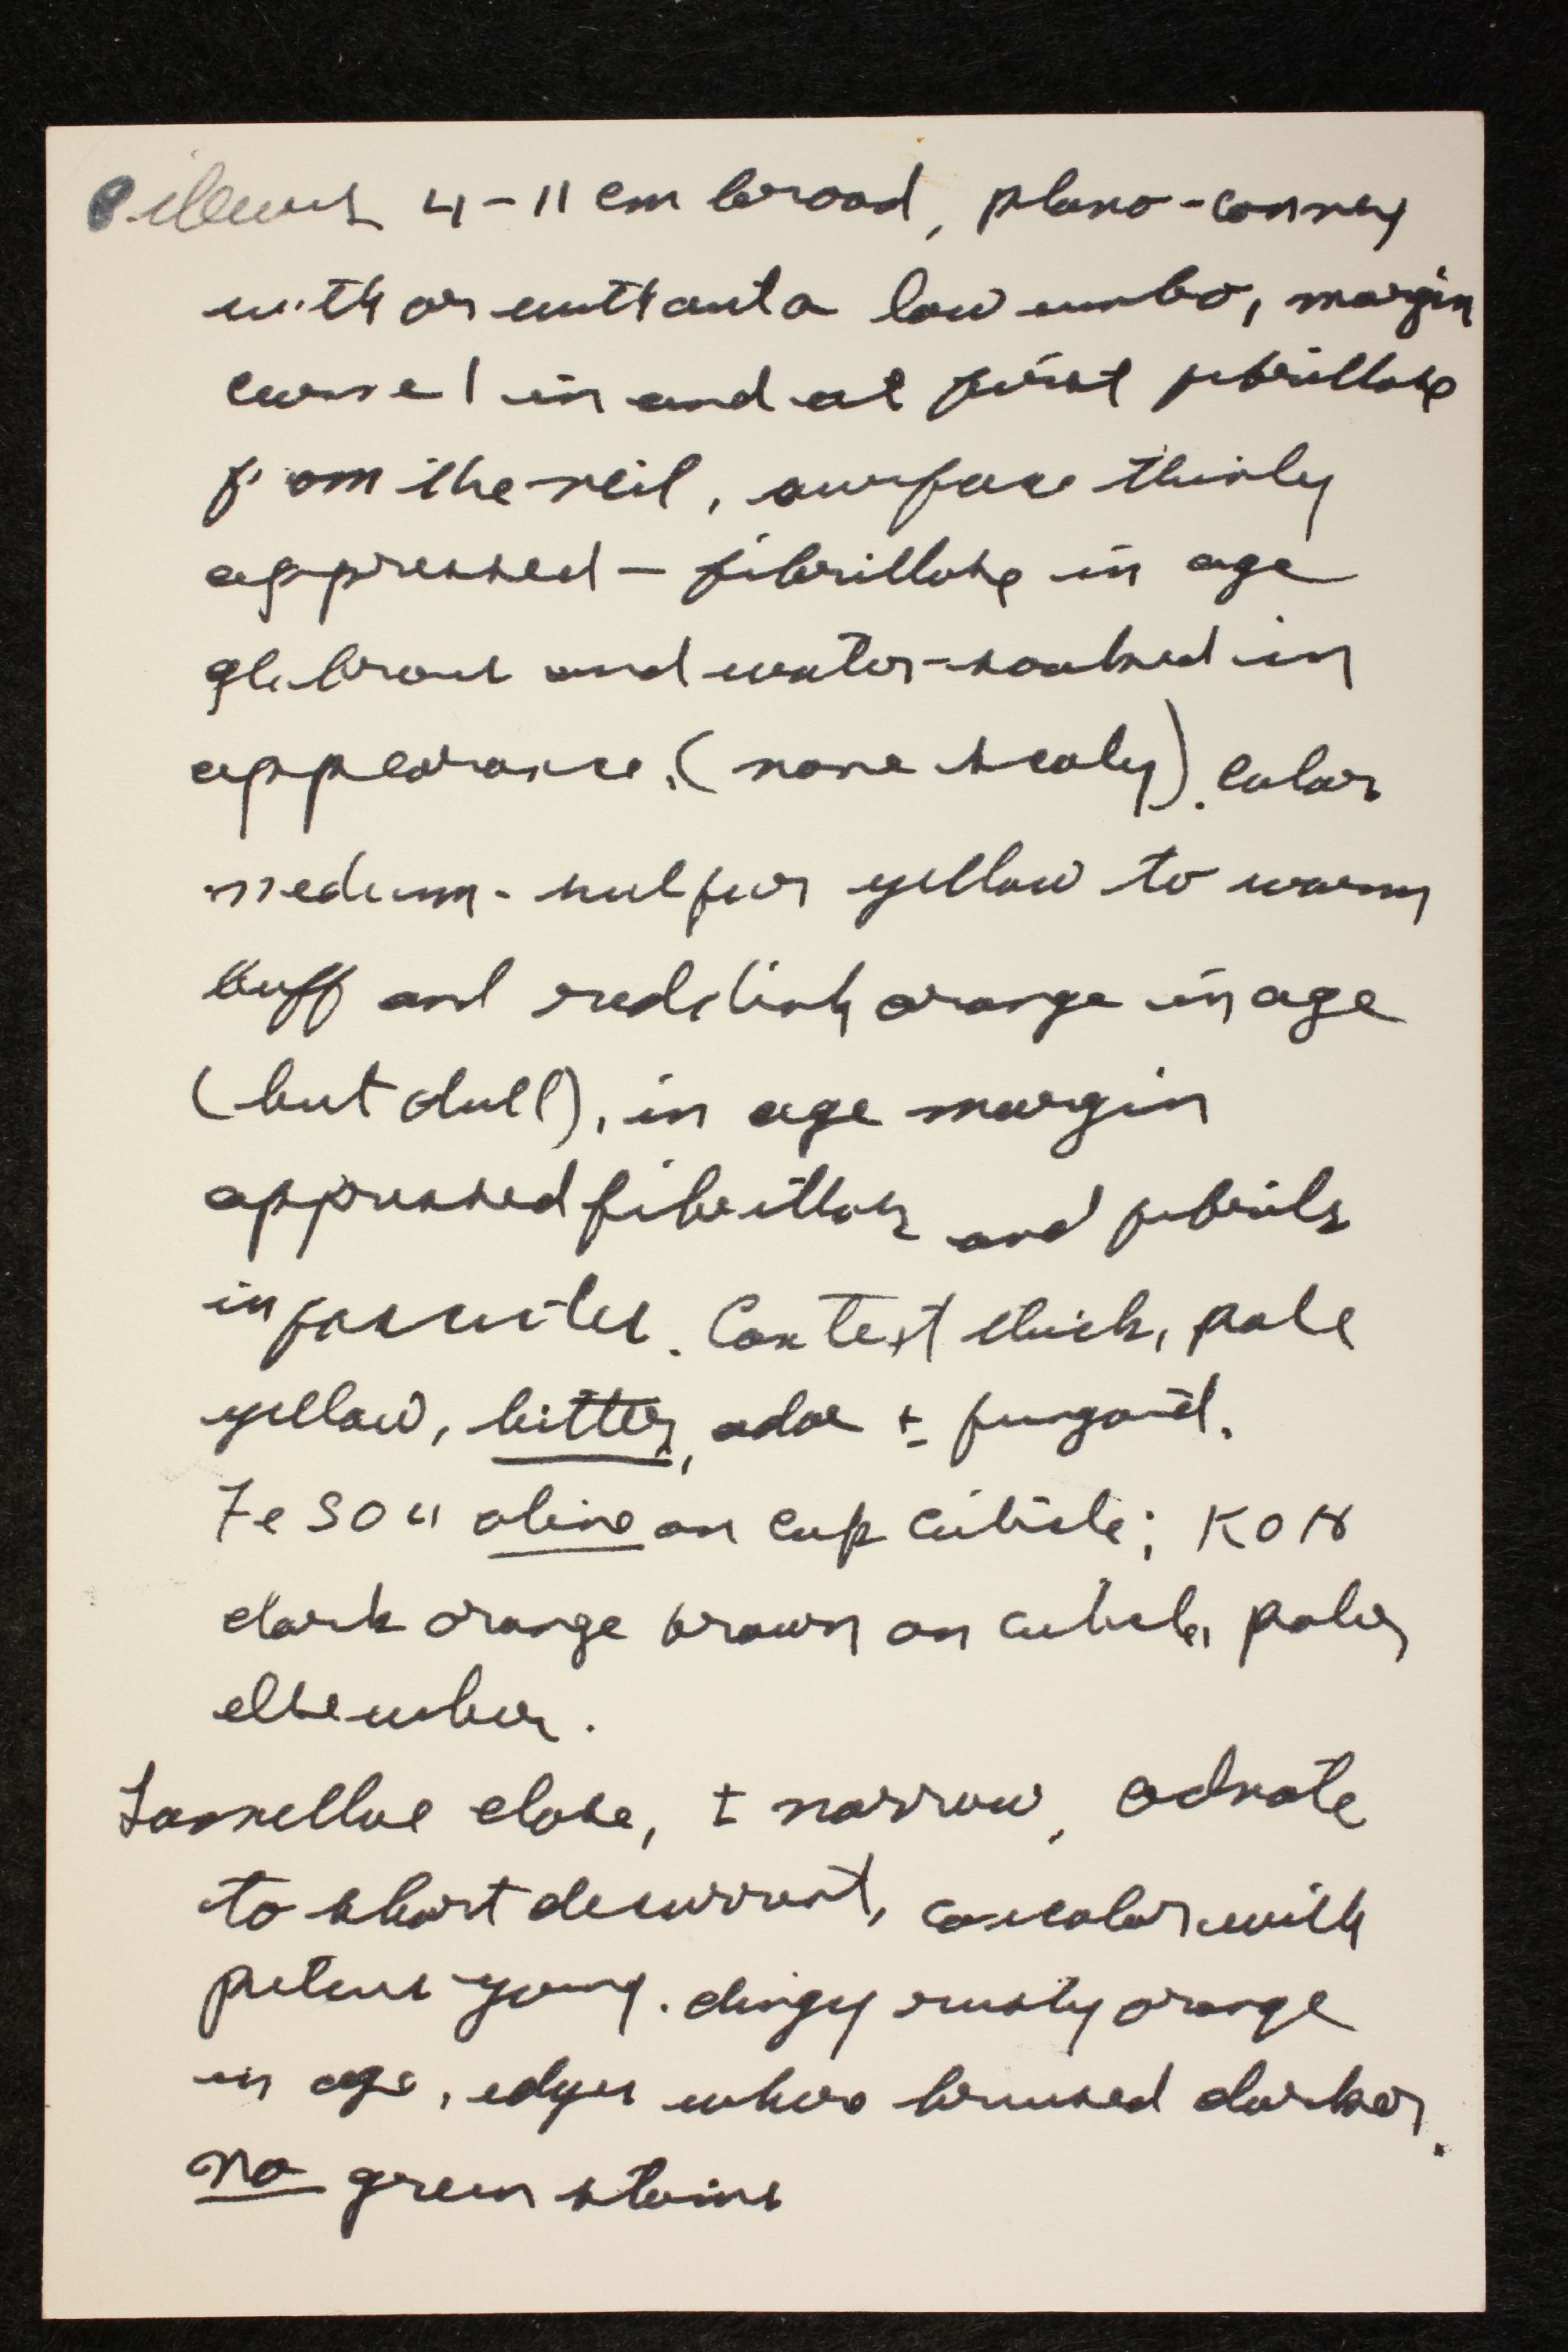 Pileus 4-11 cm broad, plano-convex
with or without a low umbo, margin
curved in and at first fibrillose
from the veil, surface thinly
appressed-fibrillose in age
glabrous and water-soaked in
appearance, (none scaly). Color
medium-sulfur yellow to warm
buff and reddish orange in age
(but dull), in age margin
appressed fibrillose and fibrils
in fascicles. Context thick, pale
yellow, bitter, odor ± fungoid.
FeSO4 olive on cap cuticle; KOH
dark orange brown on cuticle, paler
elsewhere.
Lamellae close, ± narrow, adnate
to short decurrent, concolor with
pileus young. dingy rusty orange
in age, edges where bruised darker.
no green stains